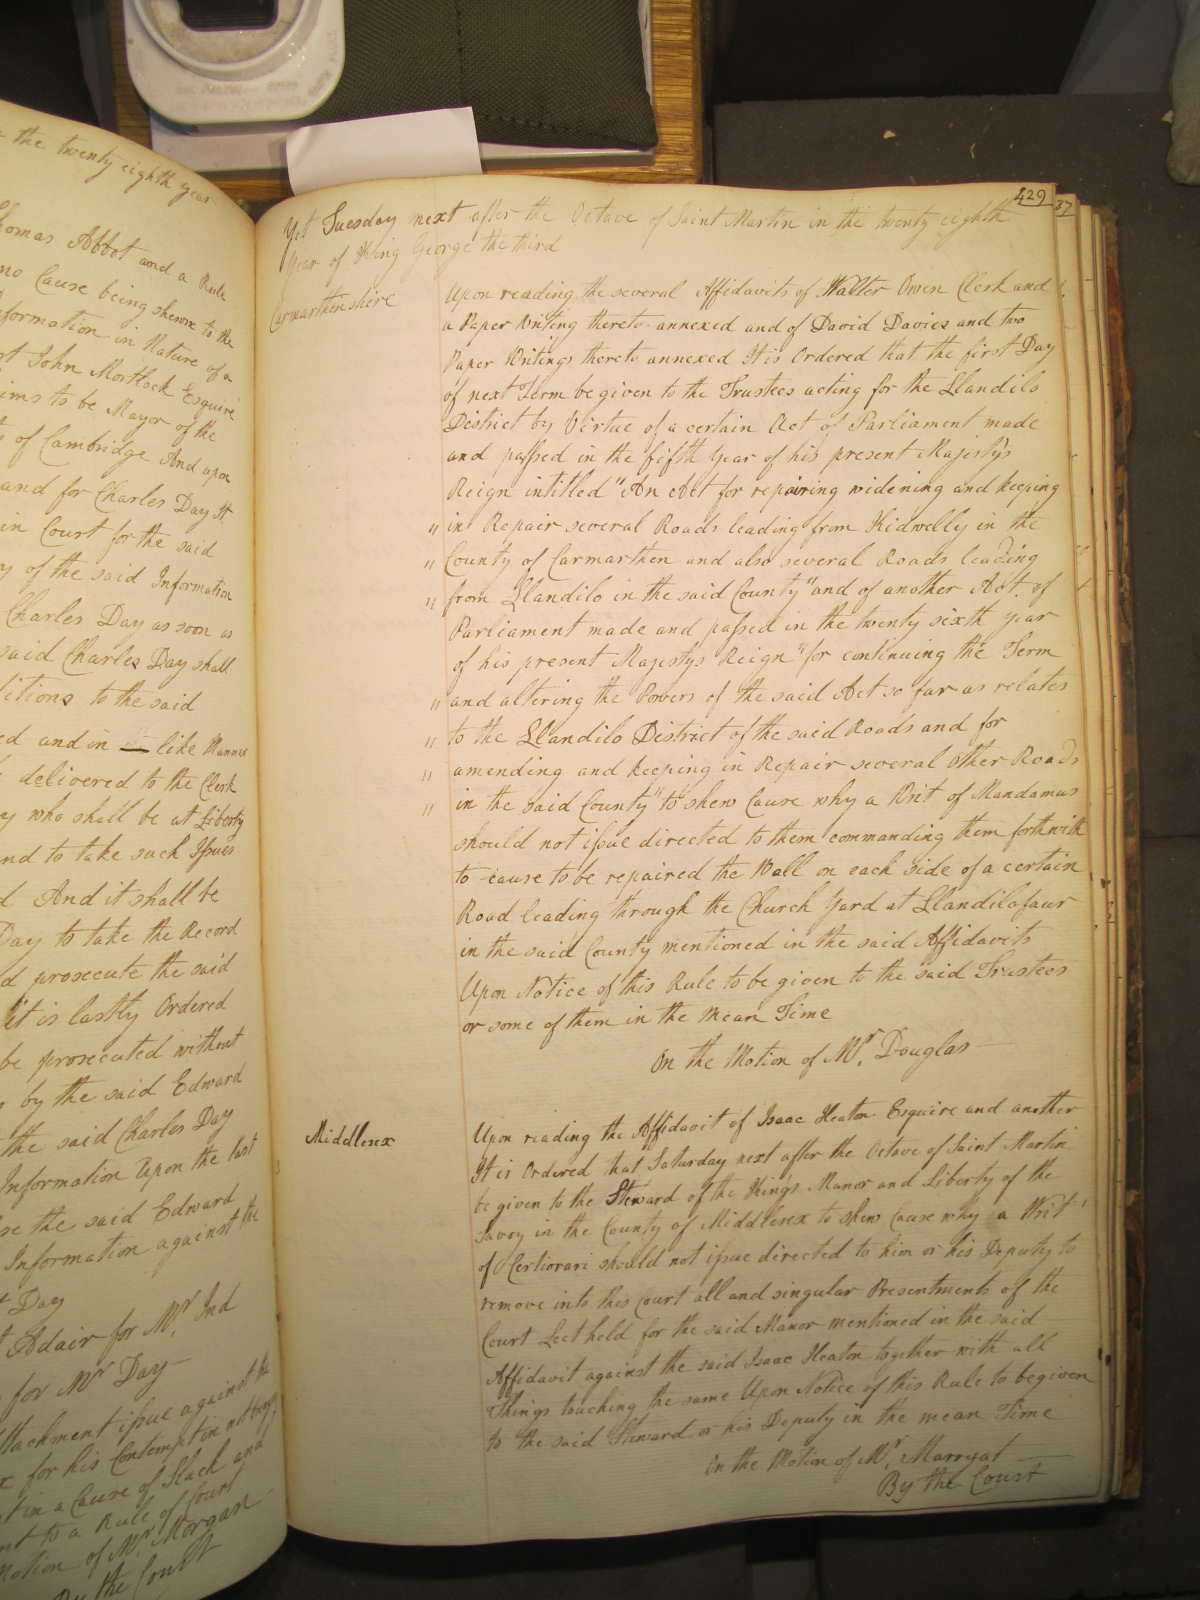 the twenty eighth year
Thomas Abbot and a Rule
no Cause being shewn to the
Information in Nature of a
John Mortlock Esquire
to be Mayor of the
of Cambridge And upon
and for Charles Day It
in Court for the said
of the said Information
Charles Day as soon as
said Charles Day shall
to the said
and in like Manner
delivered to the Clerk
who shall be at Liberty
and to take such Issues
And it shall be
Day to take the Record
prosecute the said
it is lastly Ordered
be prosecuted without
by the said Edward
the said Charles Day
Information upon the last
the said Edward
Information against the
Day
Adair for Mr. Ind
for Mr Day
Attachment issue against the
for his Contempt in not
in a Cause of Slack and
to a Rule of Court
Motion of Mr Morgan
By the Court
429
37
Yet Tuesday next after the Octave of Saint Martin in the twenty eighth
Year of King George the third
Carmarthenshire
Upon reading the several Affidavits of Walter Owen Clerk and
a Paper Writing thereto annexed and of David Davies and two
Paper Writings thereto annexed It is Ordered that the first Day
of next Term be given to the Trustees acting for the Llandilo
District by Virtue of a certain Act of Parliament made
and passed in the fifth Year of his present Majesty's
Reign intitled "An Act for repairing widening and keeping
" in Repair several Roads leading from Kidwelly in the
" County of Carmarthen and also several Roads leading
" from Llandilo in the said County" and of another Act of
Parliament made and passed in the twenty sixth year
of his present Majestys Reign "for continuing the Term
" and altering the Powers of the said Act so far as relates
" to the Llandilo District of the said Roads and for
" amending and keeping in Repair several Other Roads
" in the said County" to shew Cause why a Writ of Mandamus
should not issue directed to them commanding them forthwith
to cause to be repaired the Wall on each side of a certain
Road leading through the Church Yard at Llandilofaur
in the said County mentioned in the said Affidavits
Upon Notice of this Rule to be given to the said Trustees
or some of them in the mean Time
On the Motion of Mr. Douglas
Middlesex
Upon reading the Affidavit of Isaac Heaton Esquire and another
It is Ordered that Saturday next after the Octave of Saint Martin
be given to the Steward of the Kings Manor and Liberty of the
Savoy in the County of Middlesex to shew Cause why a Writ
of Certiorari should not issue directed to him or his Deputy to
remove into this Court all and singular Presentments of the
Court Leet held for the said Manor mentioned in the said
Affidavit against the said Isaac Heaton together with all
Things touching the same Upon Notice of this Rule to be given
to the said Steward or his Deputy in the mean Time
On the Motion of Mr. Marryat
By the Court